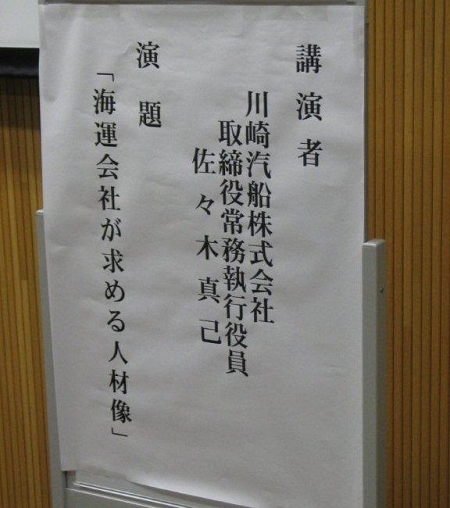 講演者
川崎汽船株式会社
取締役常務執行役員
佐々木真己
演題
「海運会社が求める人材像」